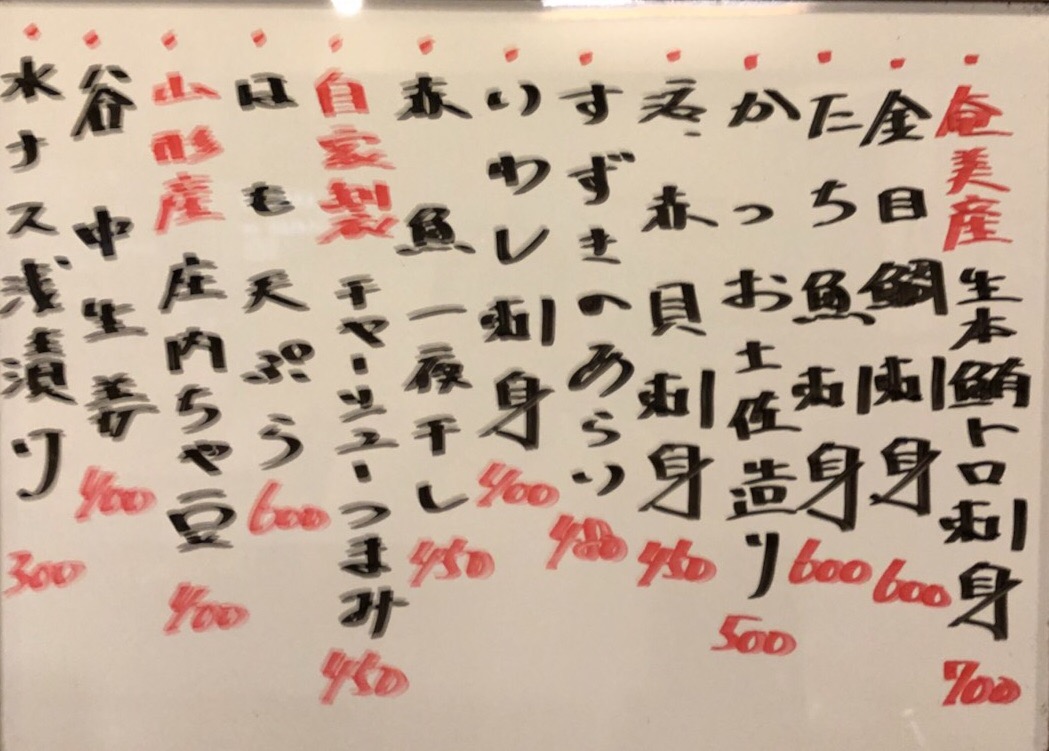 奄美産 生本鮪トロ刺身 700
金目鯛刺身 600
たち魚刺身 600
かつお土佐造り 500
赤貝刺身 450
すずきのあらい 480
いわし刺身 400
赤魚一夜干し 450
自家製チャーシューつまみ 450
はも天ぷら 600
山形産 庄内ちゃ豆 400
谷中生姜 400
水ナス浅漬り 300